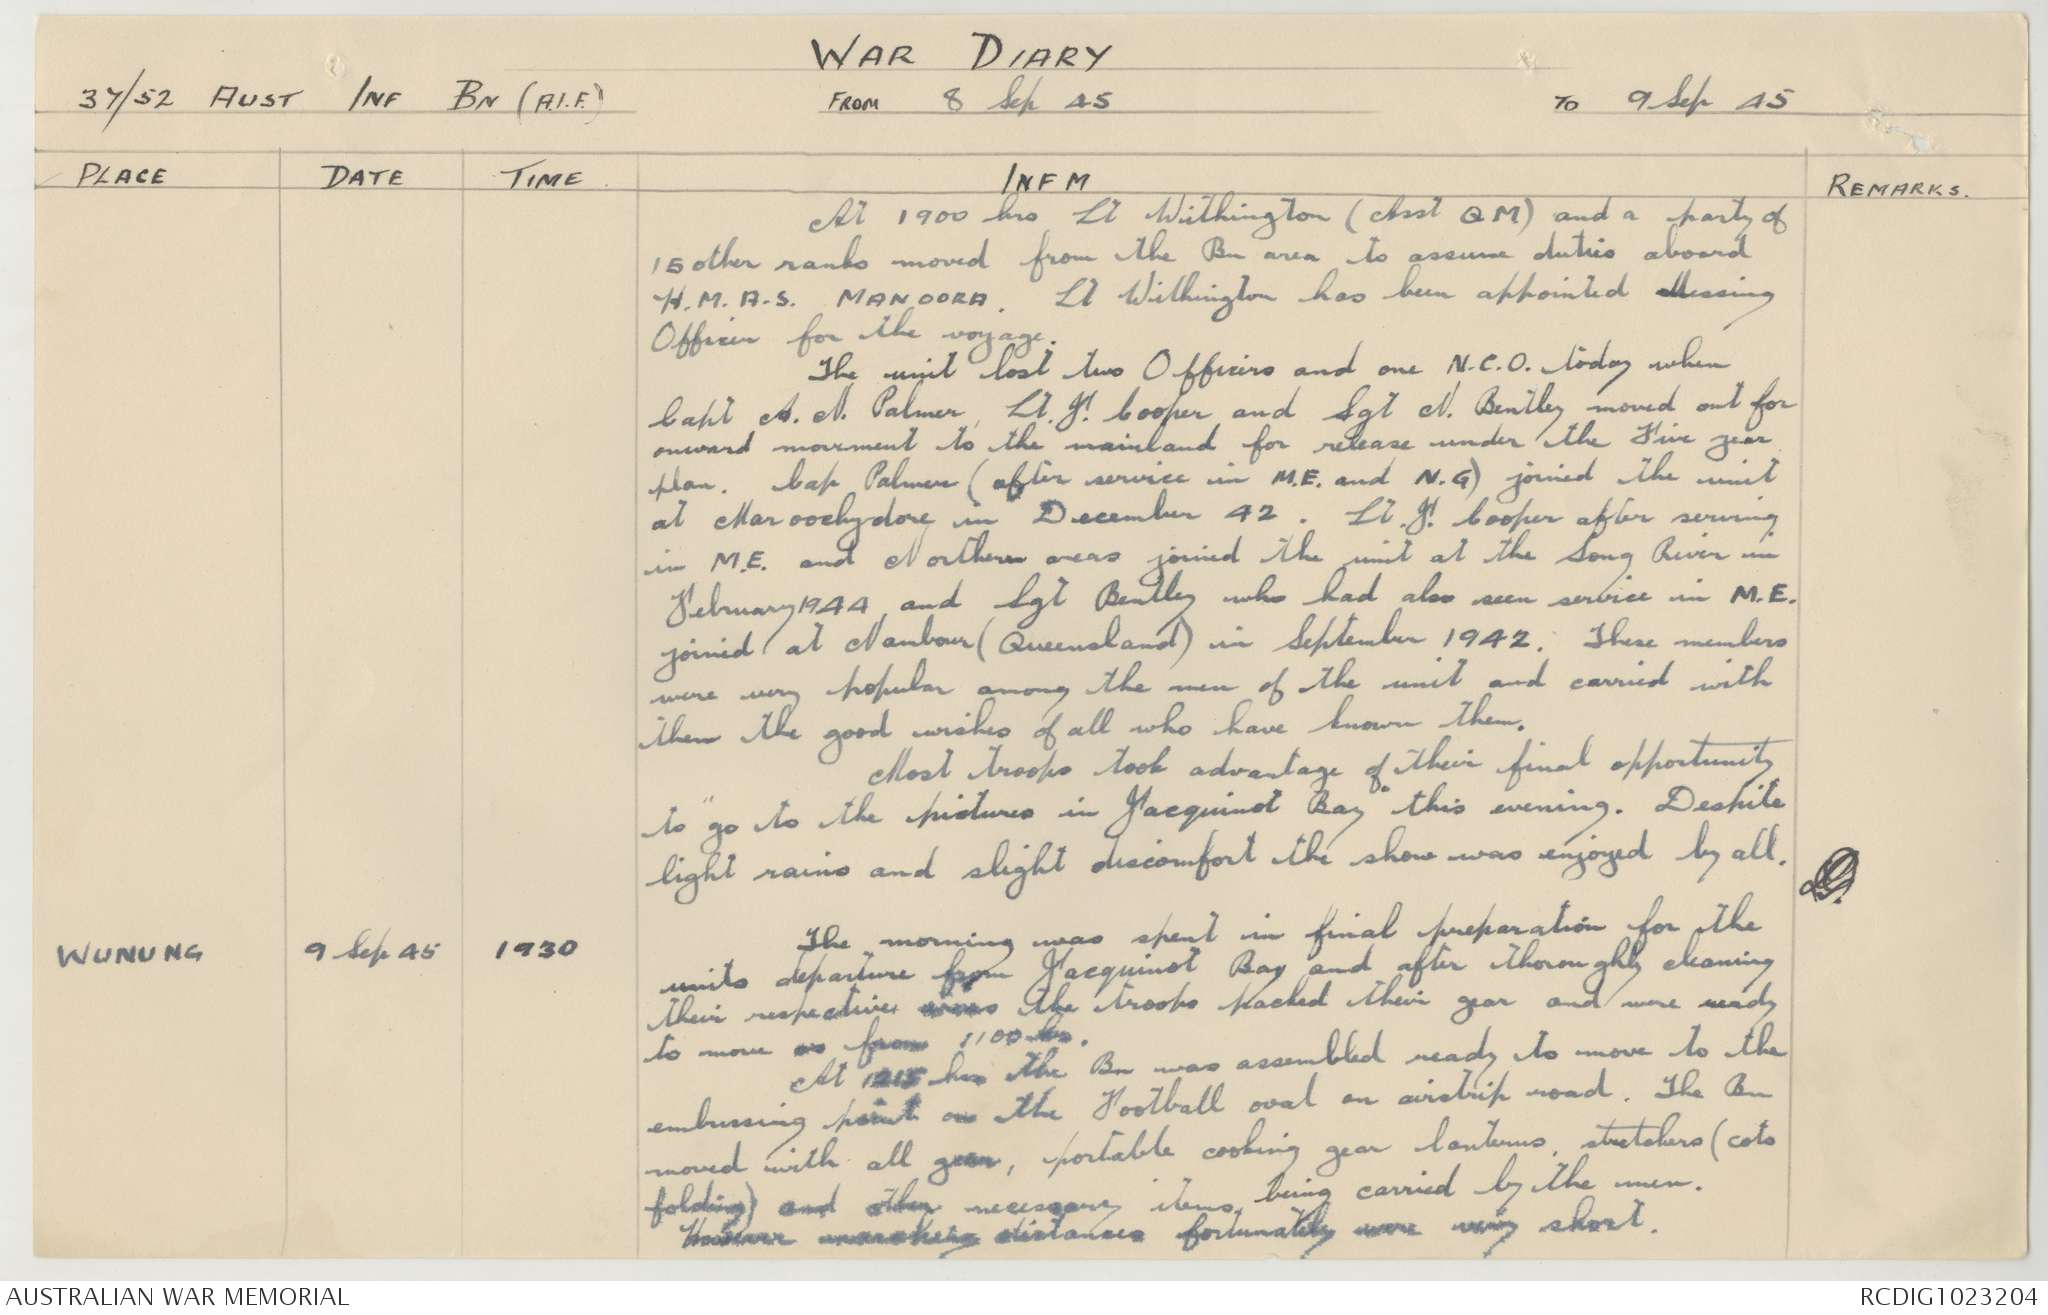 WAR DIARY
37/52 AUST INF BN (A.I.F.) FROM 8 Sep 45 TO 9 Sep 45
PLACE DATE TIME INFM REMARKS.
At 1900 hrs Lt Withington (Asst QM) and a party of
15 other ranks moved from the Bn area to assume duties aboard
H.M.A.S. MANOORA. Lt Withington has been appointed Messing
Officer for the voyage.
The unit lost two Officers and one N.C.O. today when
Capt A. N. Palmer, Lt. J. Cooper and Sgt N. Bentley moved out for
onward movement to the mainland for release under the Five year
plan. Cap Palmer (after service in M.E. and N.G) joined the unit
at Maroochydore in December 42. Lt. J. Cooper after serving
in M.E. and Northern areas joined the unit at the Song River in
February 1944 and Sgt Bentley who had also seen service in M.E.
joined at Nambour (Queensland) in September 1942. These members
were very popular among the men of the unit and carried with
them the good wishes of all who have known them.
Most troops took advantage of their final opportunity
to "go to the pictures in Jacquinot Bay" this evening. Despite
light rains and slight discomfort the show was enjoyed by all.
WUNUNG 9 Sep 45 1930 The morning was spent in final preparation for the
units departure from Jacquinot Bay and after thoroughly cleaning
their respective areas the troops packed their gear and were ready
to move as from 1100 hrs.
At 1215 hrs the Bn was assembled ready to move to the
embussing point on the Football oval on airstrip road. The Bn
moved with all gear, portable cooking gear lanterns, stretchers (cots
folding) and other necessary items being carried by the men.
However marching distances fortunately were very short.
AUSTRALIAN WAR MEMORIAL RCDIG1023204